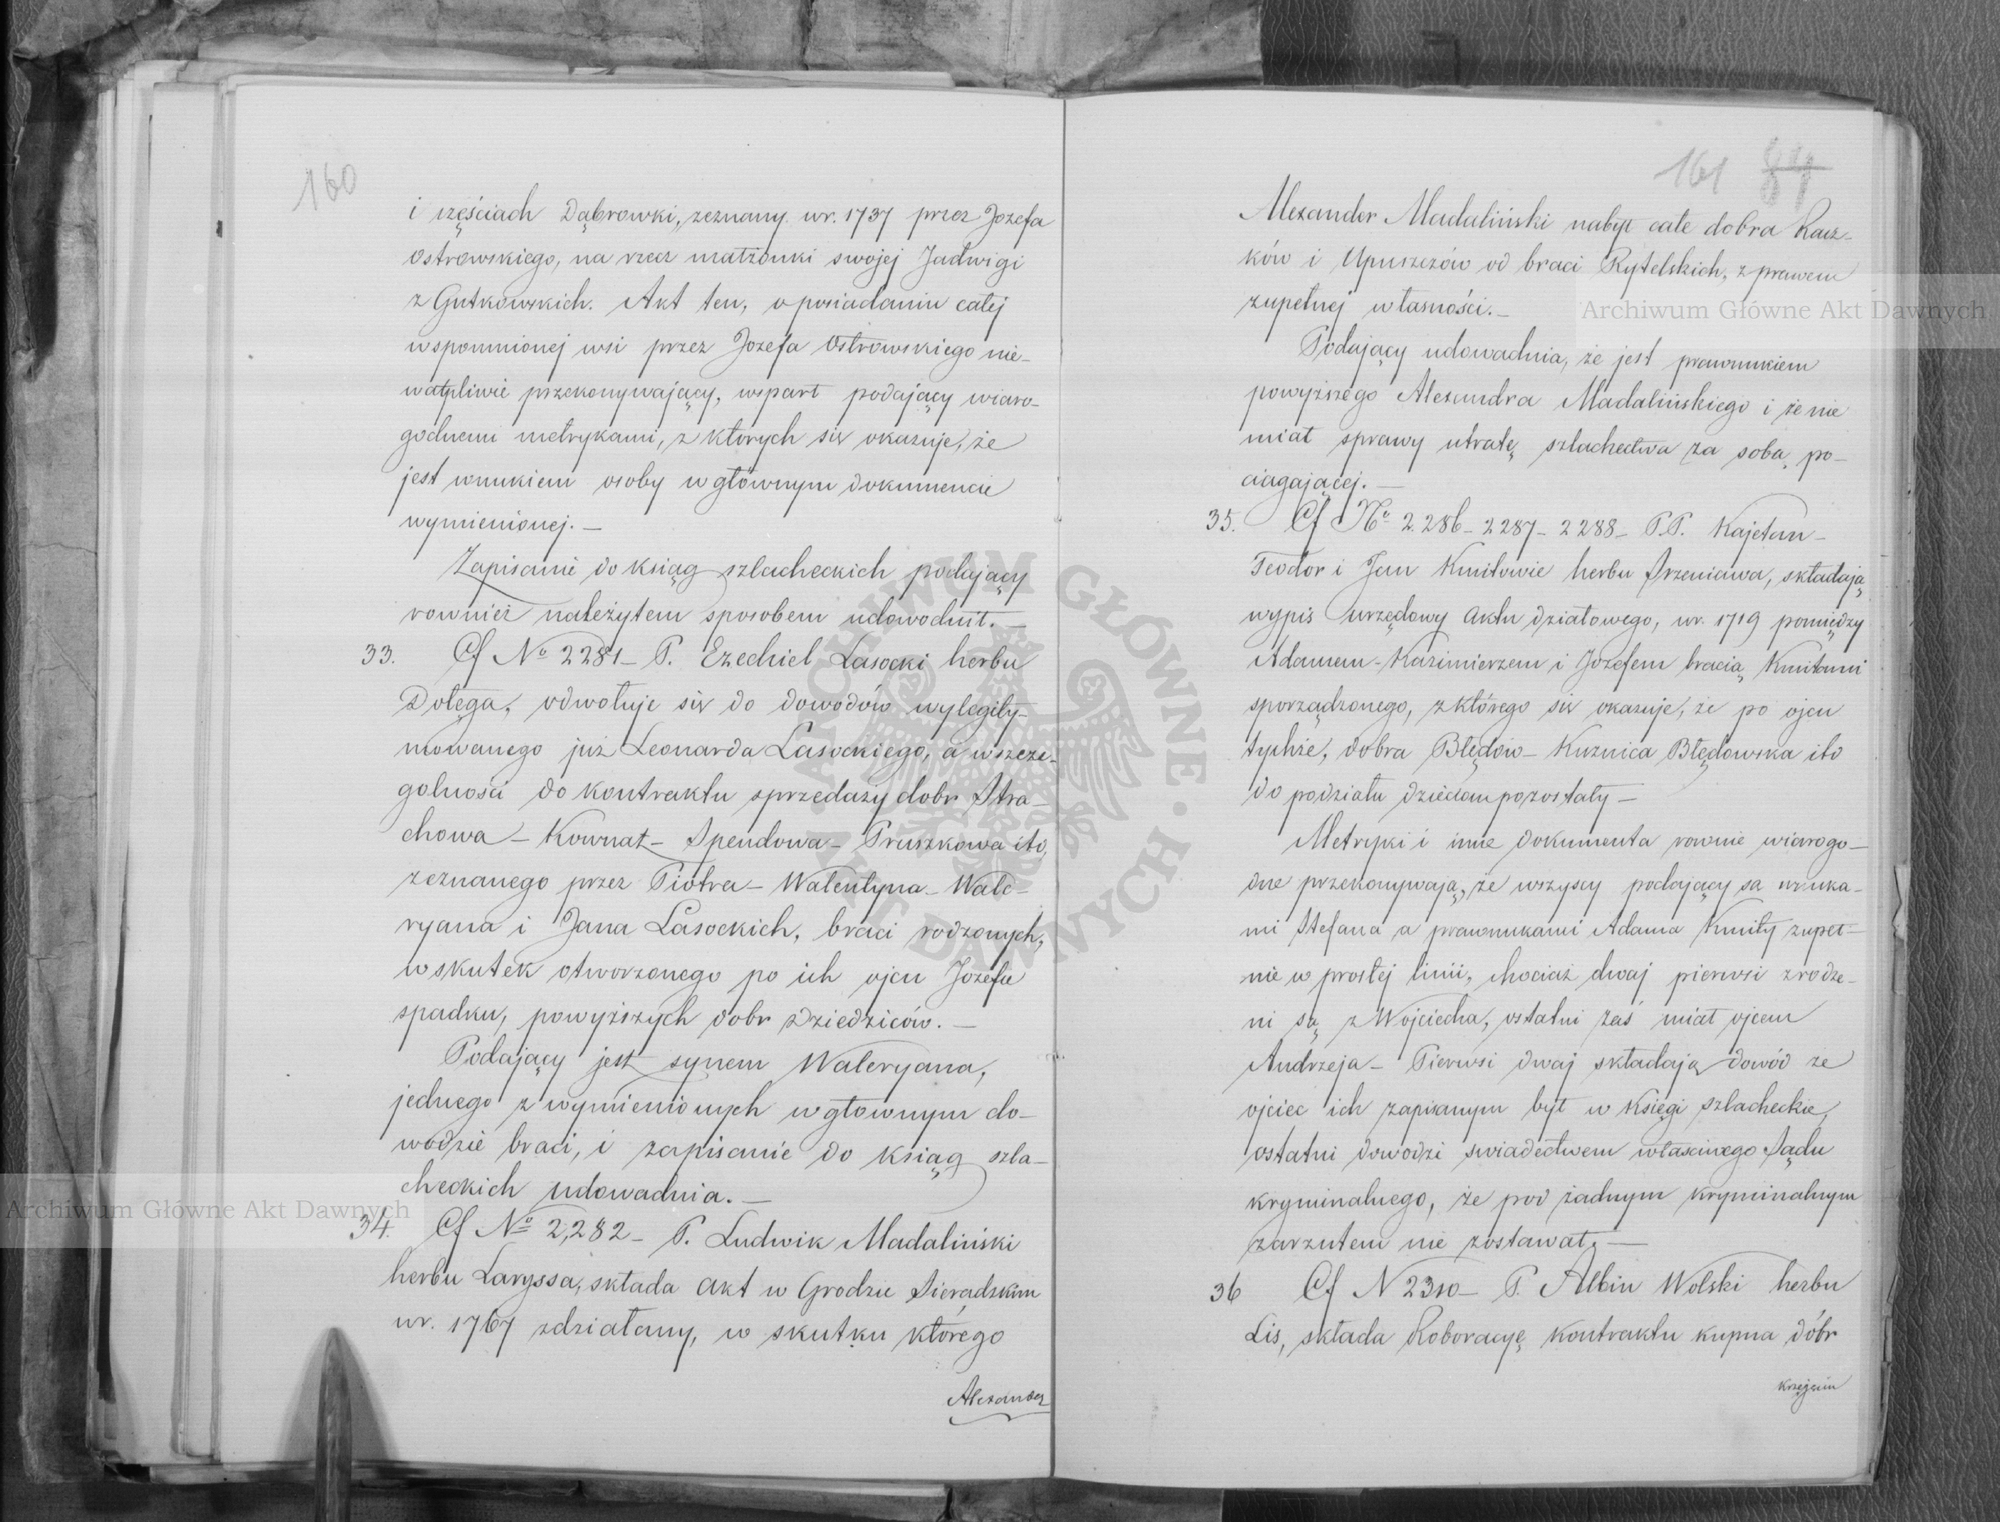 160
i częściach Dąbrowki, zeznany w r. 1737 przez Jozefa
Ostrowskiego, na rzecz małżonki swojej Jadwigi
z Gutkowskich. Akt ten, o posiadaniu całej
wspomnionej wsi przez Jozefa Ostrowskiego nie-
wątpliwie przekonywający, wsparł podający wiaro-
godnemi metrykami, z ktorych się okazuje, że
jest wnukiem osoby w głownym dokumencie
wymienionej. —
Zapisanie do ksiąg szlacheckich podający
rownież należytem sposobem udowodnił. —
33. Cf No 2281 – P. Ezechiel Lasocki herbu
Dołęga, odwołuje się do dowodów wylegity-
mowanego już Leonarda Lasockiego, a w szcze-
golności do kontraktu sprzedaży dobr Stra-
chowa – Kownat – Spendowa – Pruszkowa itd.
zeznanego przez Piotra – Walentyna – Wale-
ryana i Jana Lasockich, braci rodzonych,
wskutek otworzonego po ich ojcu Jozefie
spadku, powyższych dobr dziedziców. —
Podający jest synem Waleryana,
jednego z wymienionych w głownym do-
wodzie braci, i zapisanie do ksiąg szla-
checkich udowadnia. —
34. Cf No 2,282 – P. Ludwik Madaliński
herbu Laryssa, składa akt w Grodzie Sieradzkim
w r. 1767 zdziałany, w skutku którego
Alexander
161 84
Alexander Madaliński nabył całe dobra Racz-
ków i Upuszczów od braci Rytelskich, z prawem
zupełnej własności. —
Podający udowadnia, że jest prawnukiem
powyższego Alexandra Madalińskiego i że nie
miał sprawy utratę szlachectwa za sobą po-
ciągającej. —
35. Cf No 2286 – 2287 – 2288 – P.P. Kajetan –
Teodor i Jan Kmitowie herbu Srzeniawa, składają
wypis urzędowy aktu działowego, w r. 1719 pomiędzy
Adamem – Kazimierzem i Jozefem bracią Kmitami
sporządzonego, z którego się okazuje, że po ojcu
tychże, dobra Błędów – Kuznica Błędowska itd
do podziału dzieciom pozostały —
Metryki i inne dokumenta rownie wiarogo-
dne przekonywają, że wszyscy podający są wnuka-
mi Stefana a prawnukami Adama Kmity zupeł-
nie w prostej linii, chociaż dwaj pierwsi zrodze-
ni są z Wojciecha, ostatni zaś miał ojcem
Andrzeja – Pierwsi dwaj składają dowód że
ojciec ich zapisanym był w Księgi szlacheckie,
ostatni dowodzi swiadectwem własciwego Sądu
kryminalnego, że pod żadnym kryminalnym
zarzutem nie zostawał. —
36 Cf N 2310 – P. Albin Wolski herbu
Lis, składa Roboracyę kontraktu kupna dóbr
Archiwum Główne Akt Dawnych
Archiwum Główne Akt Dawnych
ARCHIWUM GŁÓWNE AKT DAWNYCH